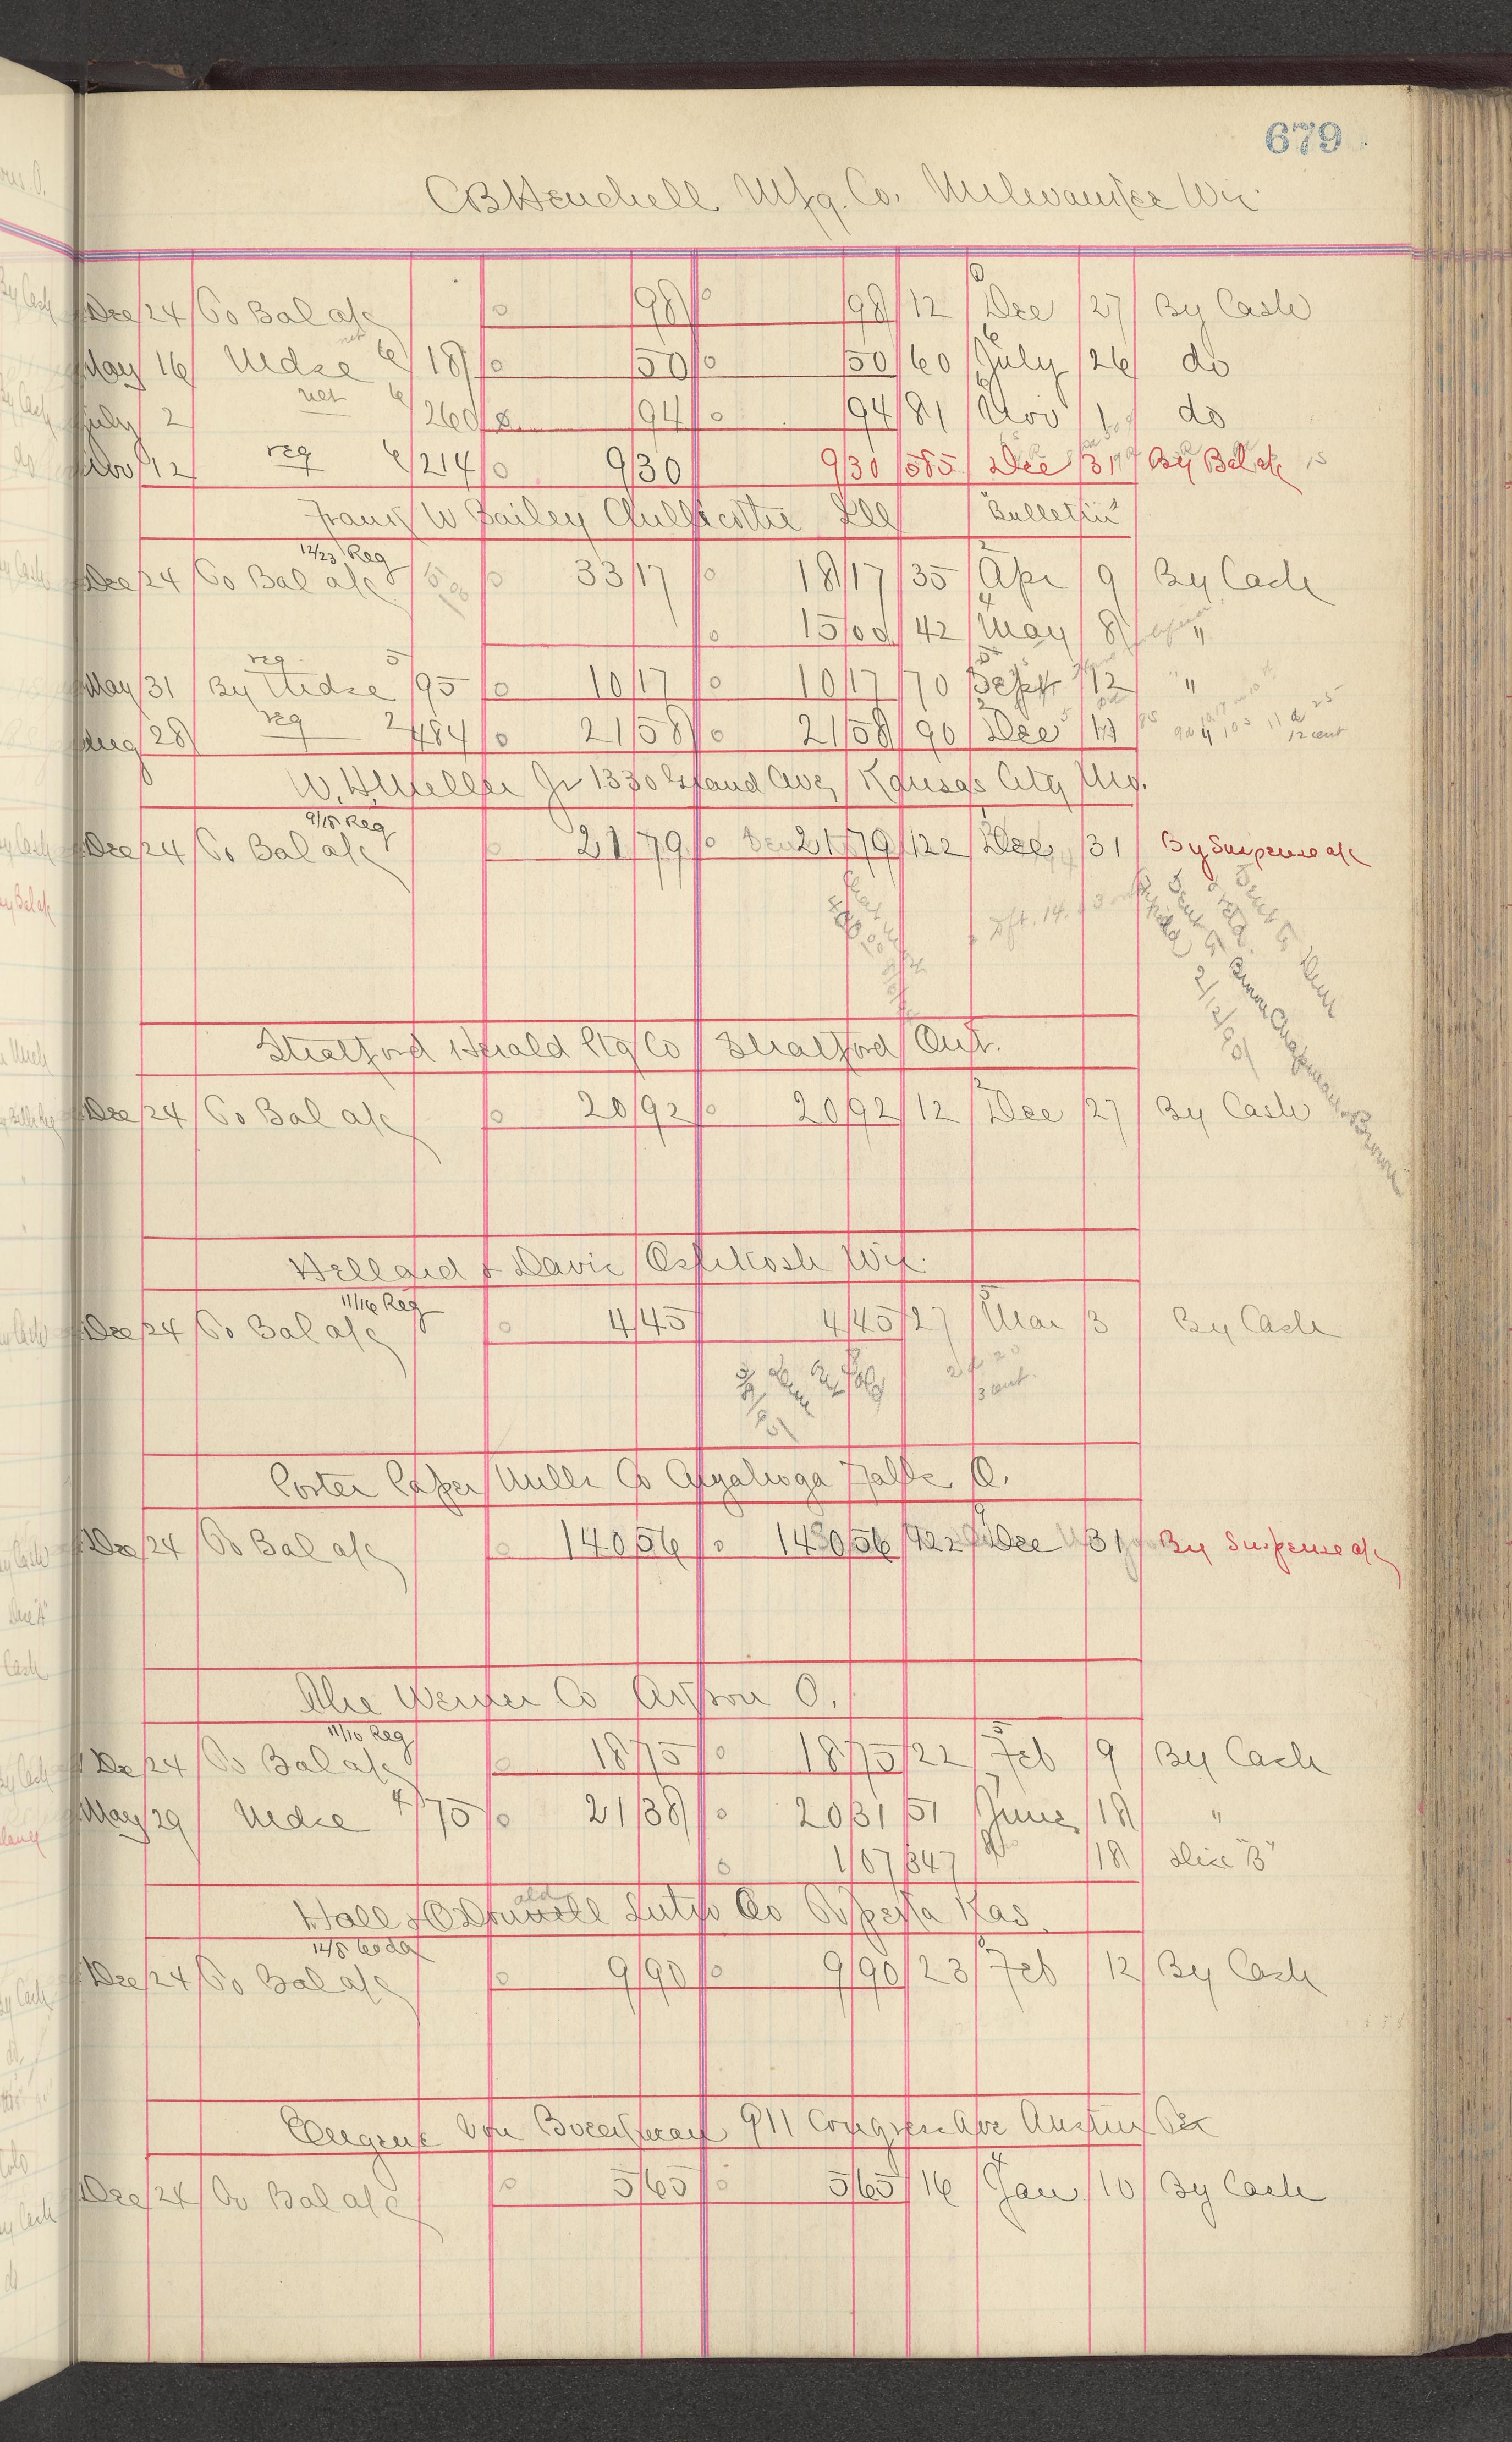 679
CB Henchell Mfg. Co. Milwaukee Wis
Dec 24 To Bal a/c 98 98 12 Dec 27 By Cash
May 16 Mdse net 6 187 50 50 60 July 26 do
July 2 net 6 260 94 94 81 Nov 1 do
Nov 12 reg 6 214 9 30 9 30 585 Dec 31 By Bal a/c
Frank W Bailey Chillicothe Ill "Bulletin"
12/23 Reg
Dec 24 To Bal a/c 33 17 18 17 35 Apr 9 By Cash
15 00 42 May 8 "
May 31 By Mdse reg 5 95 10 17 10 17 70 Sept 12 "
Aug 28 reg 2 484 21 58 21 58 90 Dec 17 "
12 cent
W. H. Mueller Jr 1330 Grand Ave Kansas City Mo.
9/15 Reg
Dec 24 To Bal a/c 21 79 21 79 122 Dec 31 By Suspense a/c
Sent to Brown Chapman Brown
2/12/901
Stratford Herald Ptg Co Stratford Ont.
Dec 24 To Bal a/c 20 92 20 92 12 Dec 27 By Cash
Davis Oshkosh Wis.
11/16 Reg
Dec 24 To Bal a/c 4 45 4 45 27 Mar 3 By Cash
3 cent.
Paper Mills Co Cuyahoga Falls O.
Dec 24 To Bal a/c 140 56 140 56 122 Dec 31 By Suspense a/c
The Werner Co Akron O.
11/10 Reg
Dec 24 To Bal a/c 18 75 18 75 22 Feb 9 By Cash
May 29 Mdse 4 75 21 38 20 31 51 June 18 "
1 07 347 18 Disc "B"
Hall & O'Donald Litho Co Topeka Kas
Dec 24 To Bal a/c 9 90 9 90 23 Feb 12 By Cash
Eugene Von Boeckman 911 Congress Ave Austin Tex
Dec 24 To Bal a/c 5 65 5 65 16 Jan 10 By Cash